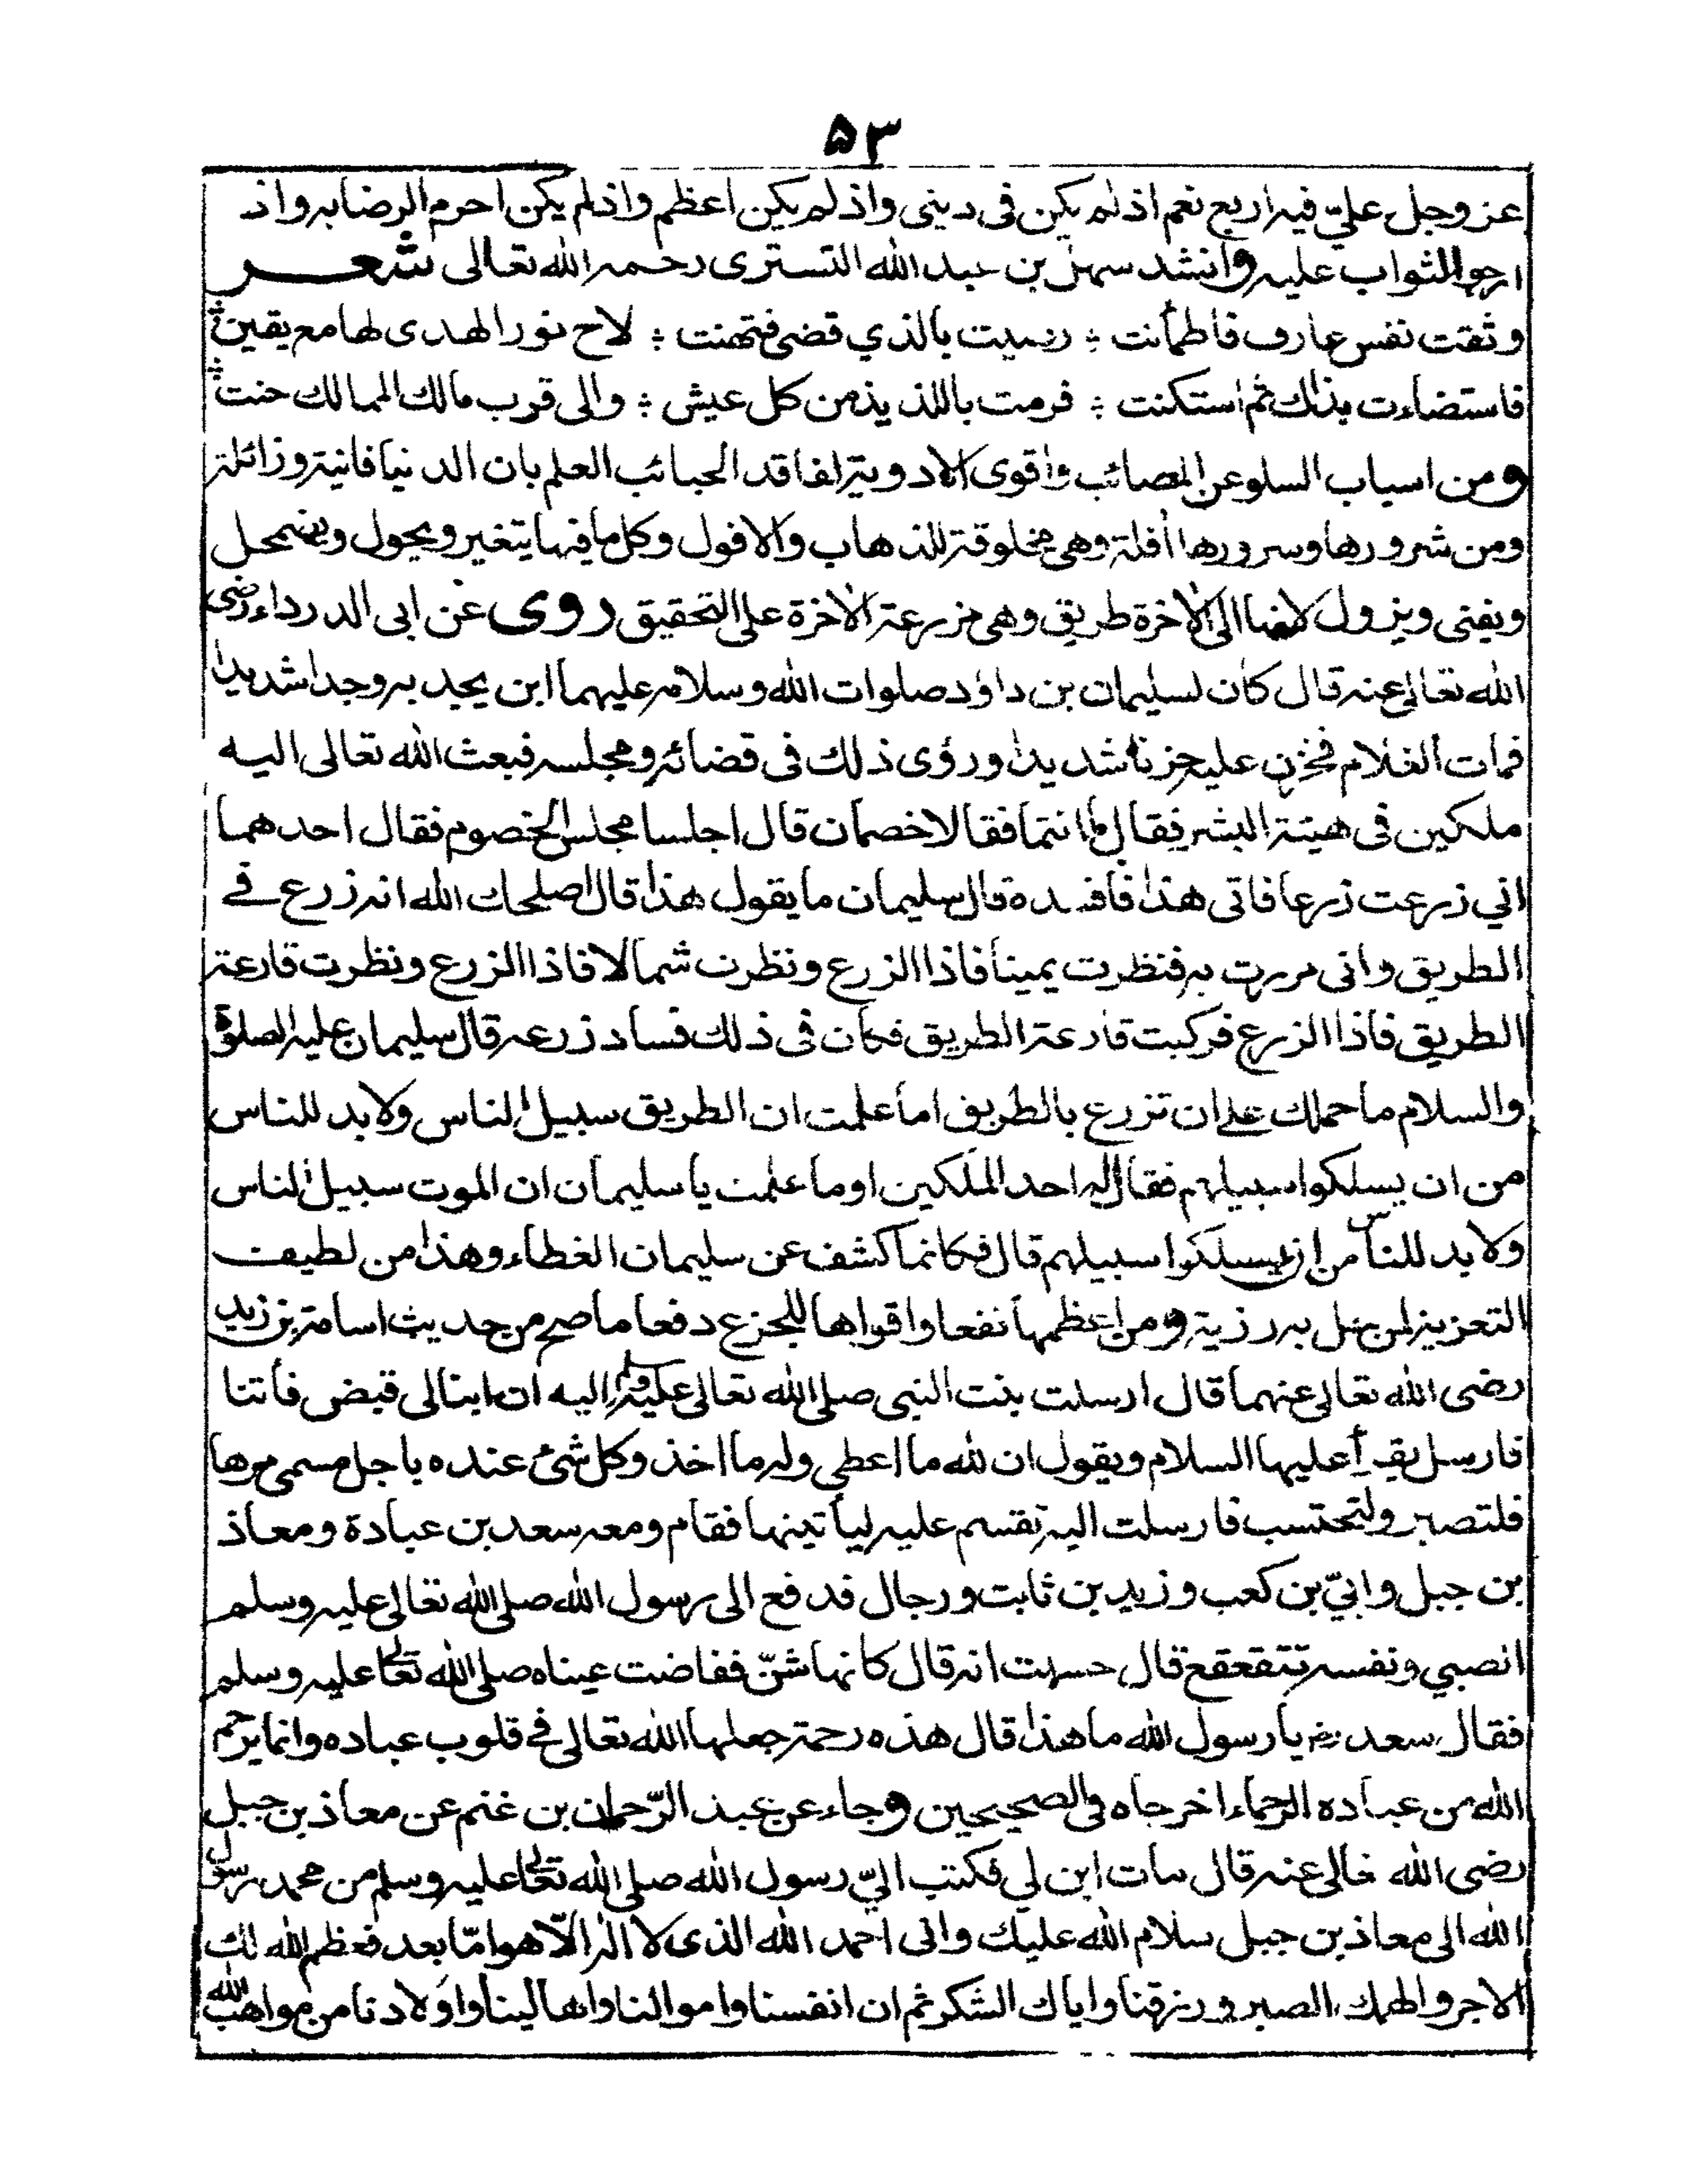 ۵۳
عز وجل عليّ فيه اربع نعم اذ لم يكن فى دينى واذ لم يكن اعظم واذ لم يكن احرم الرضا به واذ
ارجو الثواب عليه وانشد سهل بن عبد الله التسترى رحمه الله تعالى شعر
وثقت نفس عارف فاطمأنت ؛ رضيت بالذي قضى فتهنت ؛ لاح نور الهدى لها مع يقين ؛
فاستضاءت بذلك ثم استكنت ؛ فرمت باللذيذ من كل عيش ؛ والى قرب مالك الممالك حنت ؛
ومن اسباب السلو عن المصائب واقوى الادوية لفاقد الحبائب العلم بان الدنيا فانية وزائلة
ومن شرورها وسرورها أفلة وهى مخلوقة للذهاب والافول وكل ما فيها يتغير ويحول ويضمحل
ويفنى ويزول لانها الى الاخرة طريق وهى مزرعة الاخرة على التحقيق روى عن ابى الدرداء رضى
الله تعالى عنه قال كان لسليمان بن داؤد صلوات الله وسلامه عليهما ابن يجد به وجدا شديدا
فمات الغلام فحزن عليه حزنا شديدا ورؤى ذلك فى قضائه ومجلسه فبعث الله تعالى اليه
ملكين فى هيئة البشر فقال ما انتما فقالا خصمان قال اجلسا مجلس الخصوم فقال احدهما
اني زرعت زرعا فاتى هذا فافسده قال سليمان ما يقول هذا قال اصلحك الله انه زرع فے
الطريق وانى مررت به فنظرت يمينا فاذا الزرع ونظرت شمالا فاذا الزرع ونظرت قارعة
الطريق فاذا الزرع فركبت قارعة الطريق فكان فى ذلك فساد زرعه قال سليمان عليه الصلوة
والسلام ما حملك على ان تزرع بالطريق اما علمت ان الطريق سبيل الناس ولا بد للناس
من ان يسلكوا سبيلهم فقال له احد الملكين او ما علمت يا سليمان ان الموت سبيل الناس
ولا بد للناس من ان يسلكوا سبيلهم قال فكانما كشف عن سليمان الغطاء وهذا من لطيف
التعزية لمن نزل به رزية ومن اعظمها نفعا واقواها للجزع دفعا ما صح من حديث اسامة بن زيد
رضى الله تعالى عنهما قال ارسلت بنت النبى صلى الله تعالى عليه وسلم اليه ان ابنا لى قبض فأتنا
فارسل يقرأ عليها السلام ويقول ان لله ما اعطى وله ما اخذ وكل شئ عنده باجل مسمى مرها
فلتصبر ولتحتسب فارسلت اليه تقسم عليه ليأتينها فقام ومعه سعد بن عبادة ومعاذ
بن جبل وابيّ بن كعب وزيد بن ثابت ورجال فدفع الى رسول الله صلى الله تعالى عليه وسلم
الصبي ونفسه تتقعقع قال حسبت انه قال كانها شنّ ففاضت عيناه صلى الله تعالى عليه وسلم
فقال سعد رض يا رسول الله ما هذا قال هذه رحمة جعلها الله تعالى فے قلوب عباده وانما يرحم
الله من عباده الرحماء اخرجاه فى الصحيحين وجاء عن عبد الرّحمان بن غنم عن معاذ بن جبل
رضى الله تعالى عنه قال مات ابن لي فكتب اليّ رسول الله صلى الله تعالى عليه وسلم من محمد رسول
الله الى معاذ بن جبل سلام الله عليك وانى احمد الله الذى لا اله الّا هو امّا بعد فعظم الله لك
الاجر والهمك الصبر ورزقنا واياك الشكر ثم ان انفسنا واموالنا واهالينا واولادنا من مواهب الله